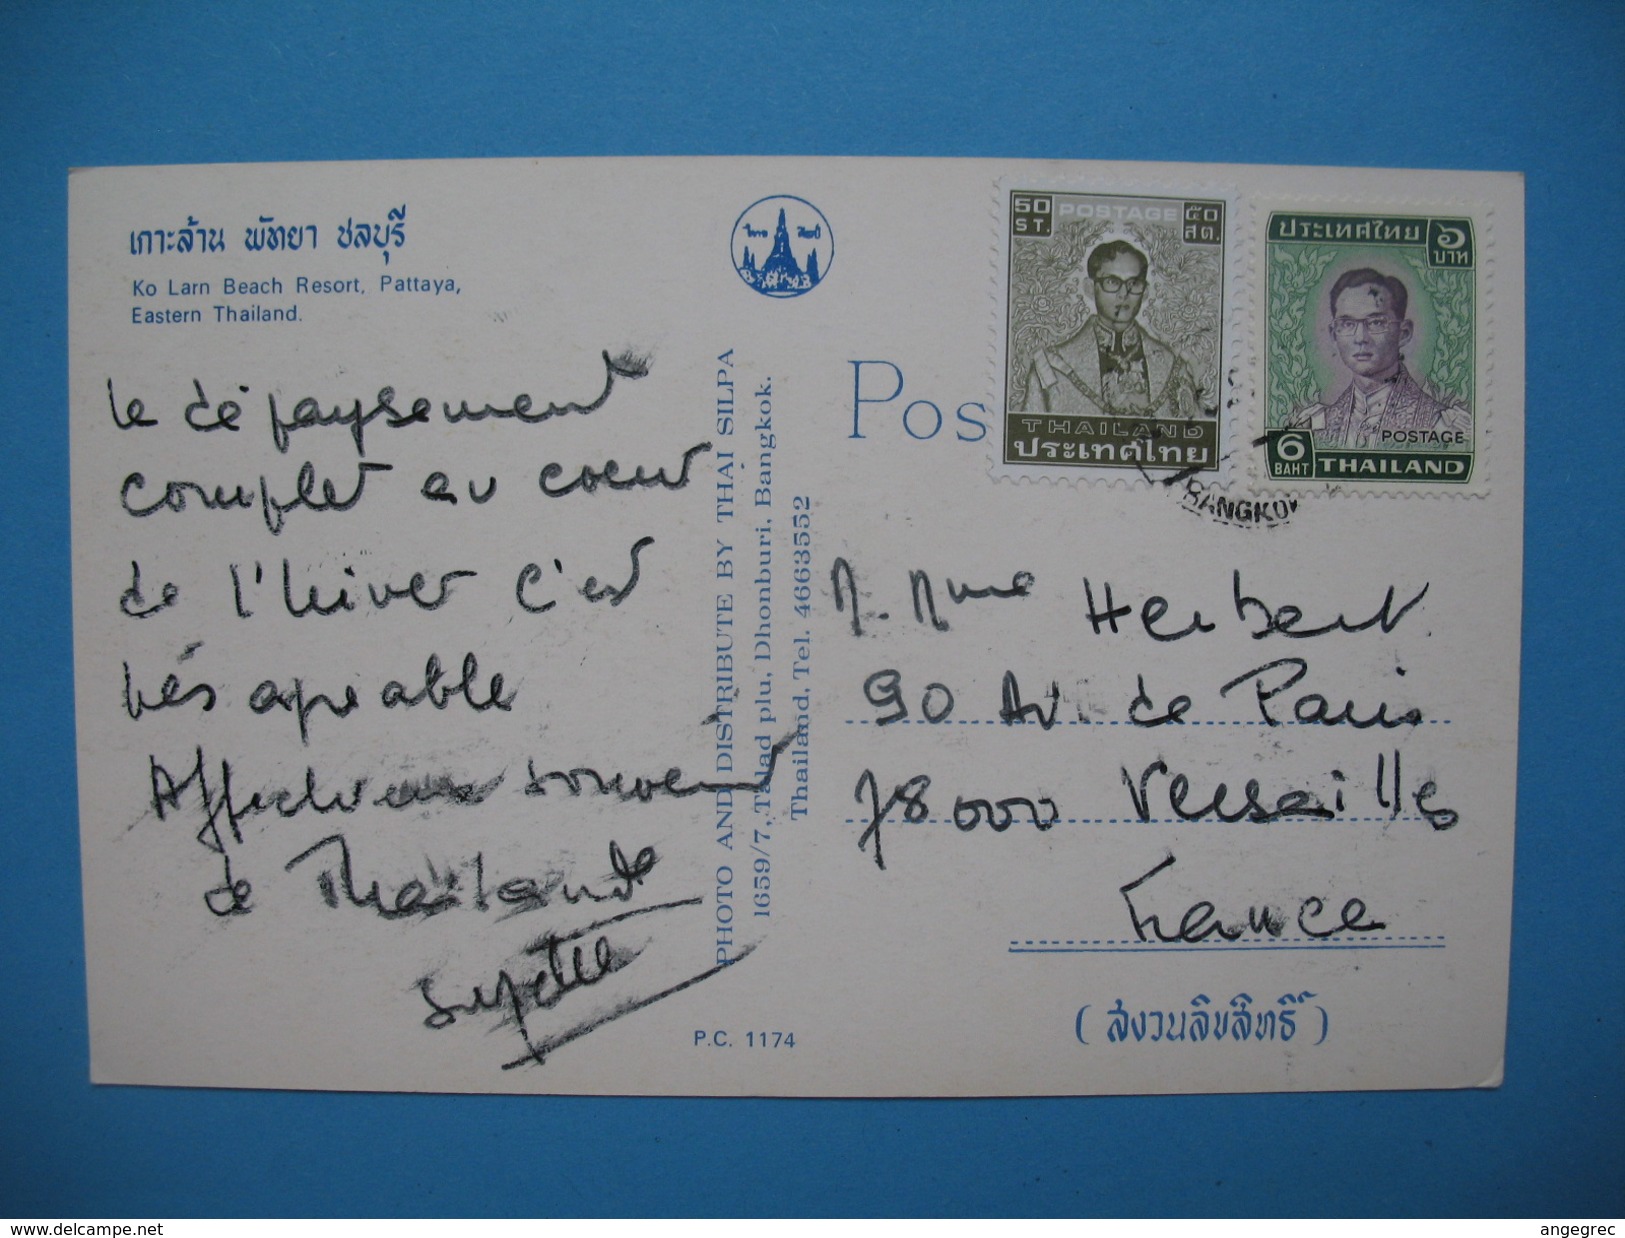 เกาะล้าน พัทยา ชลบุรี
Ko Larn Beach Resort, Pattaya,
Eastern Thailand.
le dépaysement
complet au coeur
de l'hiver c'est
très agréable
Affectueux souvenir
de Thailande
P.C. 1174
PHOTO AND DISTRIBUTE BY THAI SILPA
1659/7, Talad plu, Dhonburi, Bangkok.
Thailand, Tel. 4663552
Pos
50 ST. POSTAGE ๕๐ สต.
THAILAND
ประเทศไทย
ประเทศไทย ๖ บาท
POSTAGE
6 BAHT THAILAND
BANGKOK
M. Mme Herbert
90 Av. de Paris
78000 Versailles
France
(สงวนลิขสิทธิ์)
www.delcampe.net
angegrec